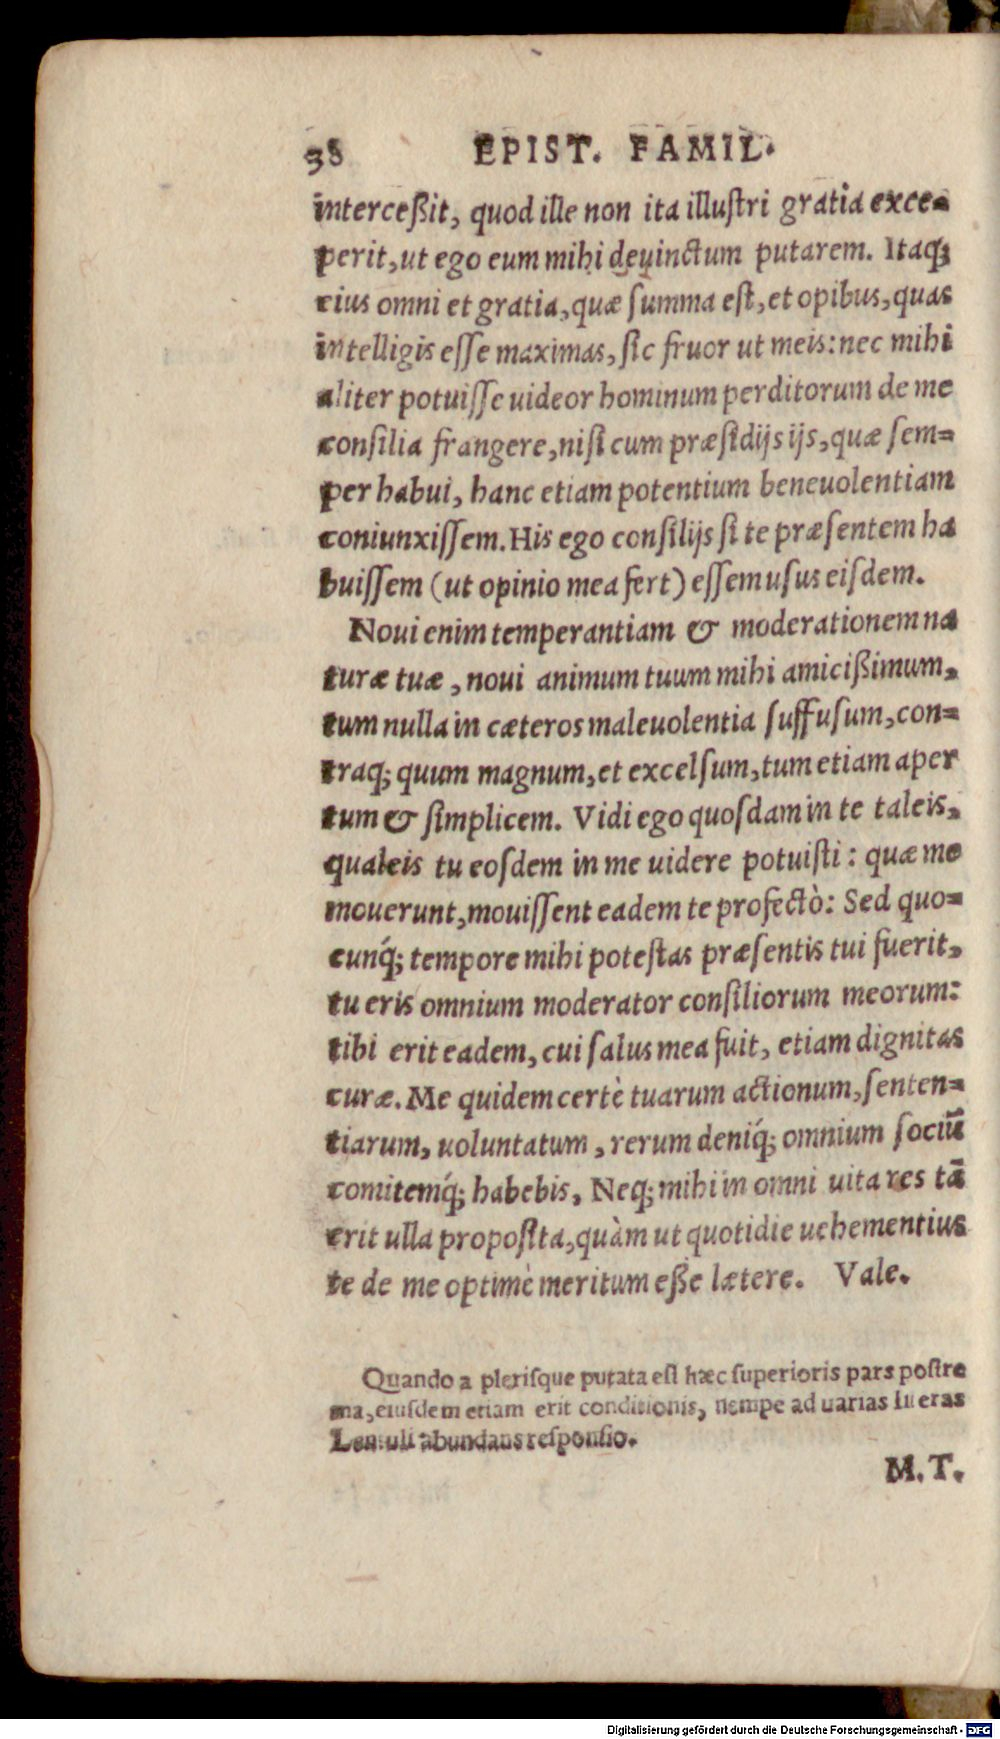 38 EPIST. FAMIL.
interceßit, quod ille non ita illuſtri gratia exce=
perit, ut ego eum mihi deuinctum putarem. Itaq;
eius omni et gratia, quæ ſumma eſt, et opibus, quas
intelligis eſſe maximas, ſic fruor ut meis: nec mihi
aliter potuiſſe uideor hominum perditorum de me
conſilia frangere, niſi cum præſidijs ijs, quæ ſem=
per habui, hanc etiam potentium beneuolentiam
coniunxiſſem. His ego conſilijs ſi te præſentem ha
buiſſem (ut opinio mea fert) eſſem uſus eiſdem.
Noui enim temperantiam & moderationem na
turæ tuæ, noui animum tuum mihi amicißimum,
tum nulla in cæteros maleuolentia ſuffuſum, con=
traq; quum magnum, et excelſum, tum etiam aper
tum & ſimplicem. Vidi ego quoſdam in te taleis,
qualeis tu eoſdem in me uidere potuiſti: quæ me
mouerunt, mouiſſent eadem te profectò: Sed quo=
cunq́; tempore mihi poteſtas præſentis tui fuerit,
tu eris omnium moderator conſiliorum meorum:
tibi erit eadem, cui ſalus mea fuit, etiam dignitas
curæ. Me quidem certè tuarum actionum, ſenten=
tiarum, uoluntatum, rerum deniq́; omnium ſociũ
comitemq́; habebis, Neq; mihi in omni uita res tã
erit ulla propoſita, quàm ut quotidie uehementius
te de me optimè meritum eße lætere. Vale.
Quando a pleriſque putata eſt hæc ſuperioris pars poſtre
ma, eiuſdem etiam erit conditionis, nempe ad uarias literas
Lentuli abundans reſponſio.
M. T.
Digitalisierung gefördert durch die Deutsche Forschungsgemeinschaft - DFG